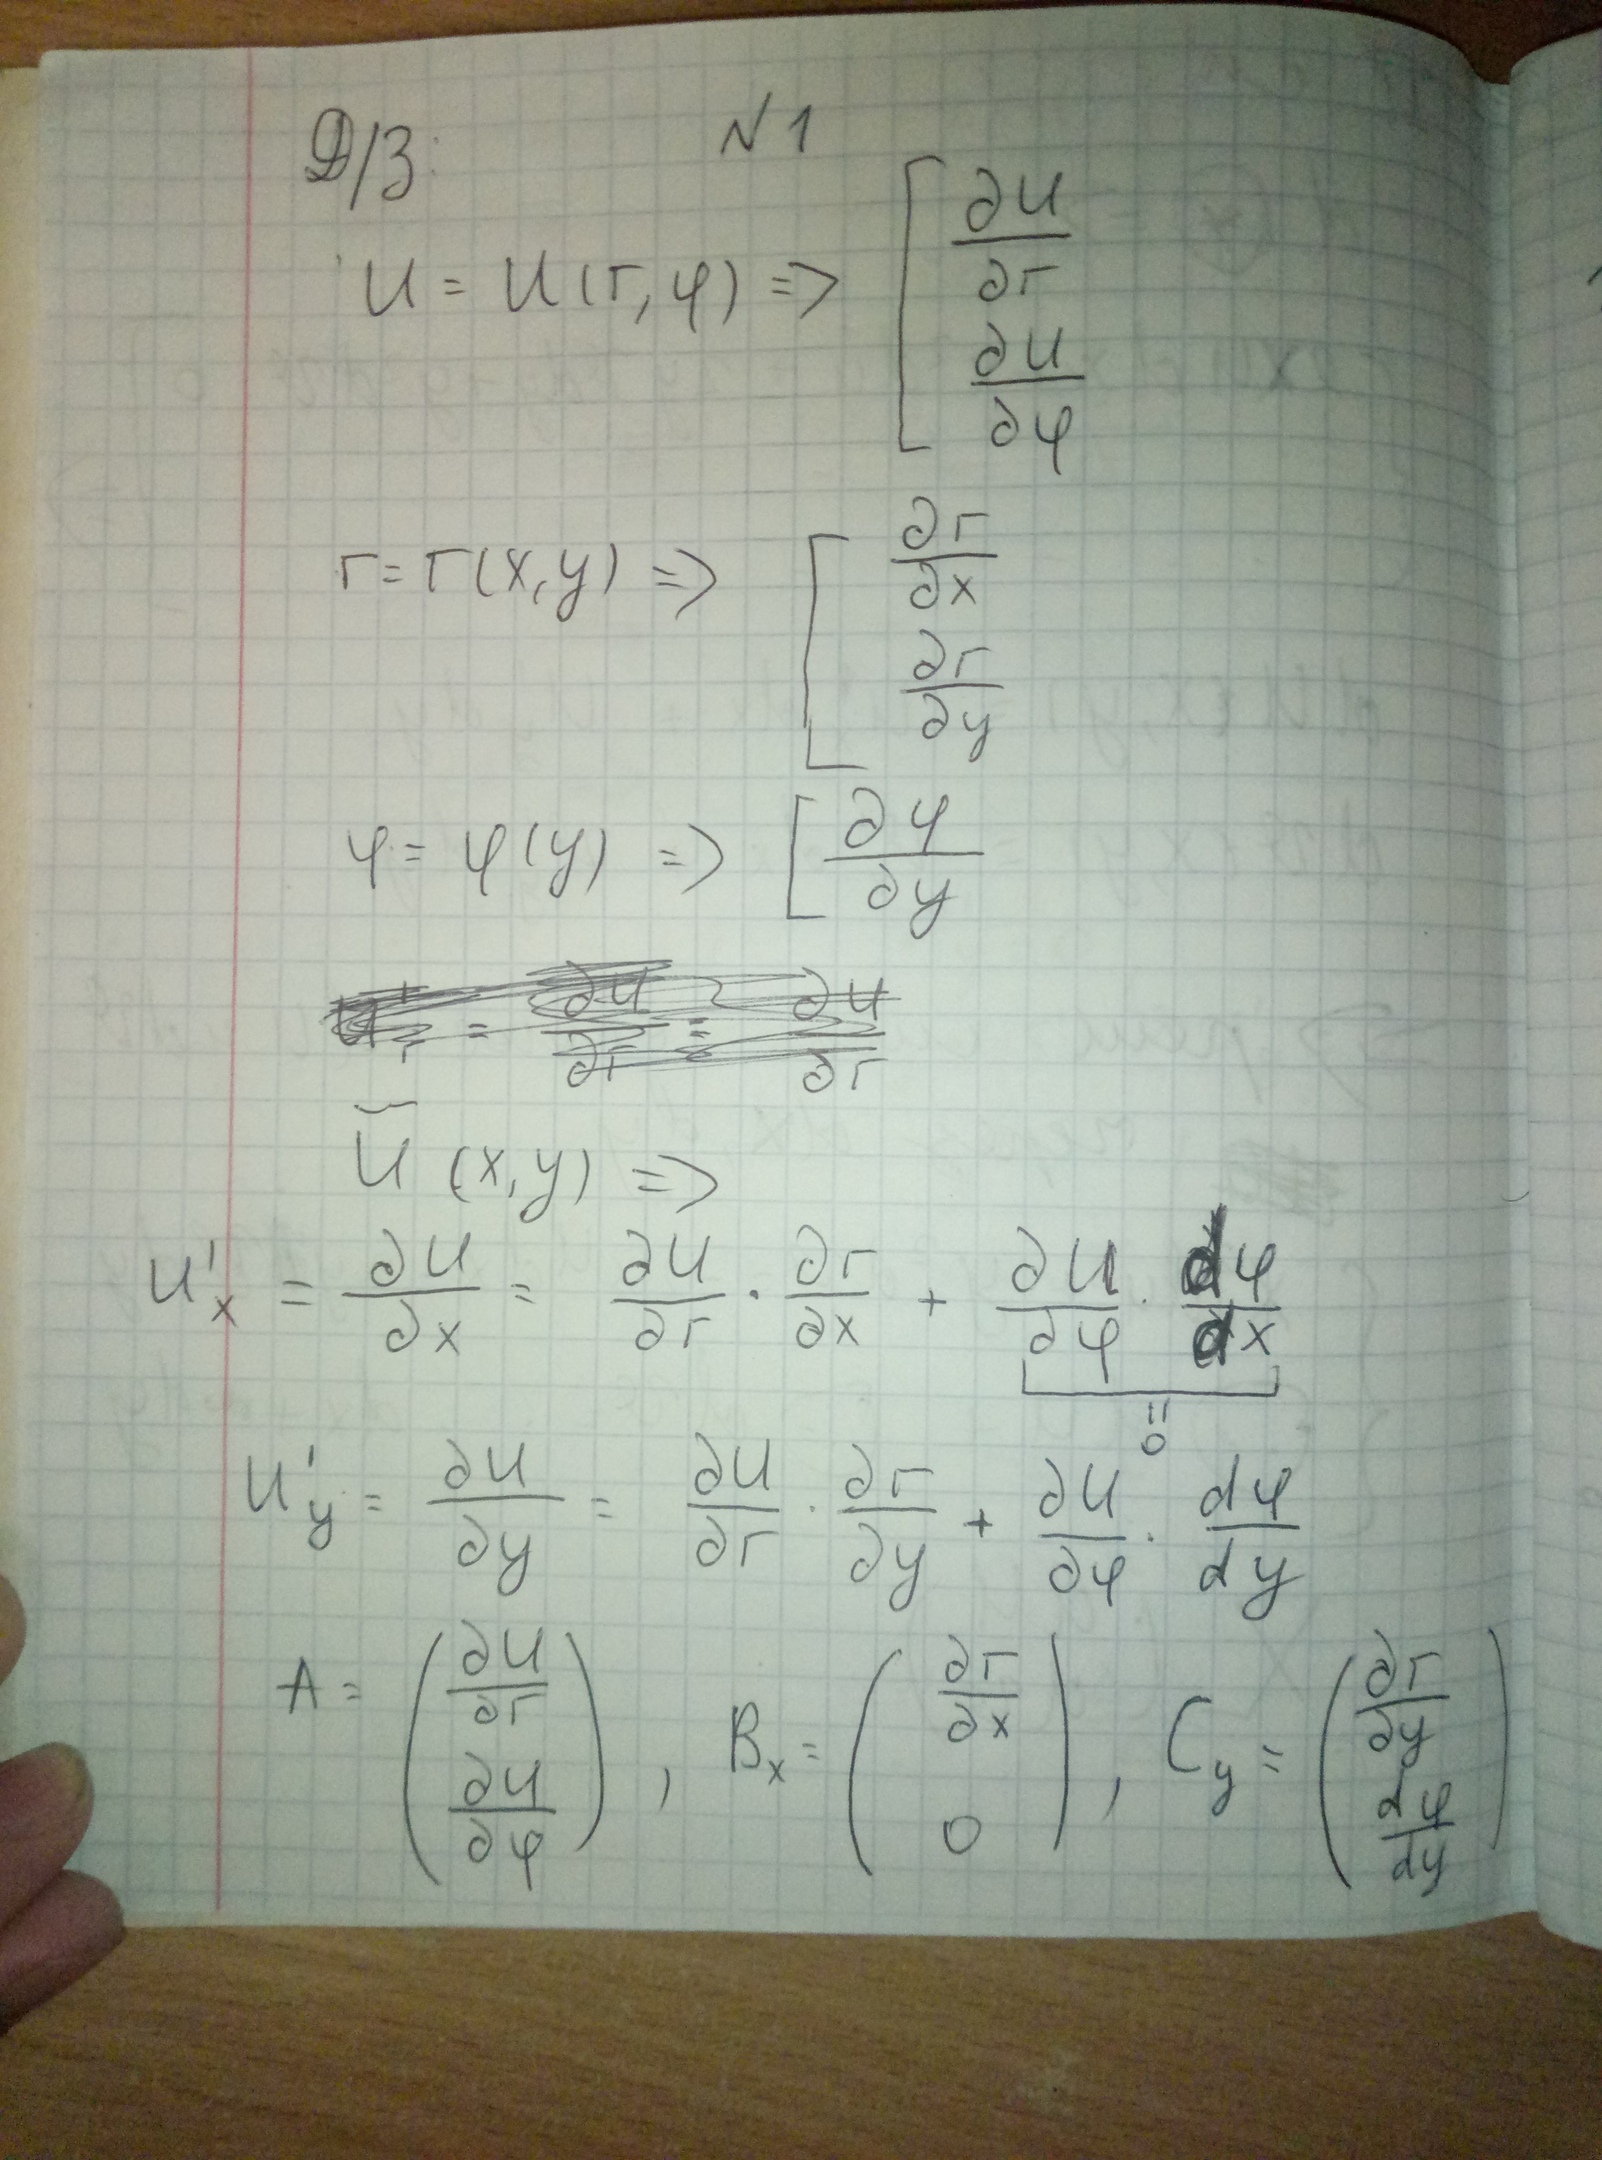 Д/З: N 1
U = U(r, φ) => [ ∂U/∂r
∂U/∂φ
r = r(x, y) => [ ∂r/∂x
∂r/∂y
φ = φ(y) => [ ∂φ/∂y
= ∂U/∂r = ∂U/∂r
Ũ (x, y) =>
U'x = ∂U/∂x = ∂U/∂r · ∂r/∂x + ∂U/∂φ · dφ/dx
= 0
U'y = ∂U/∂y = ∂U/∂r · ∂r/∂y + ∂U/∂φ · dφ/dy
A = (∂U/∂r ∂U/∂φ), Bx = (∂r/∂x 0), Cy = (∂r/∂y dφ/dy)